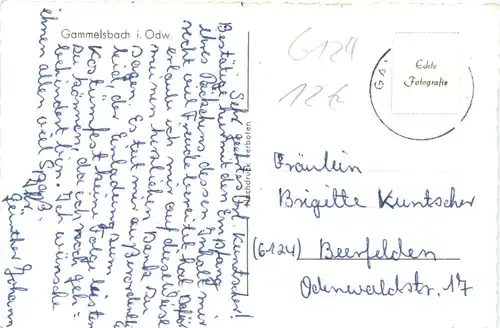 Gammelsbach i. Odw.
Sehr geehrtes Frl. Kuntscher!
Bestätige hiermit den Empfang
Ihres Päckchens, dessen Inhalt mir
recht viel Freude bereitet hat. Dafür
erlaube ich mir auf diese Weise
meinen herzlichen Dank zu
sagen. Es tut mir außerordentlich
leid, der Einladung zum
Kostümfest keine Folge leisten
zu können, da ich noch geh-
behindert bin. Ich wünsche
ihnen allen viel Spaß.
Günther Johann
Nachdruck verboten
6124
12 k
Echte
Fotografie
Fräulein
Brigitte Kuntscher
(6124) Beerfelden
Odenwaldstr. 17